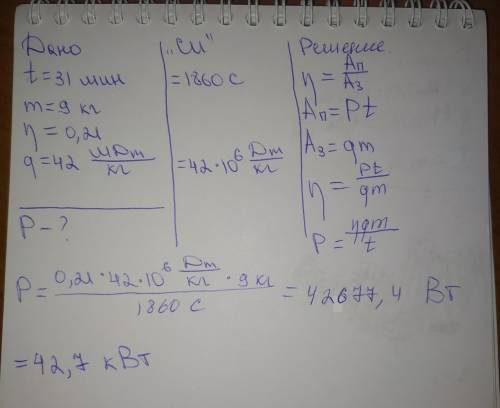 Дано
t = 31 мин
m = 9 кг
η = 0,21
q = 42 МДж/кг
P - ?
„СИ"
= 1860 с
= 42·10⁶ Дж/кг
Решение
η = Aп/Aз
Aп = Pt
Aз = qm
η = Pt/qm
P = ηqm/t
P = 0,21·42·10⁶ Дж/кг · 9 кг / 1860 с = 42677,4 Вт
= 42,7 кВт